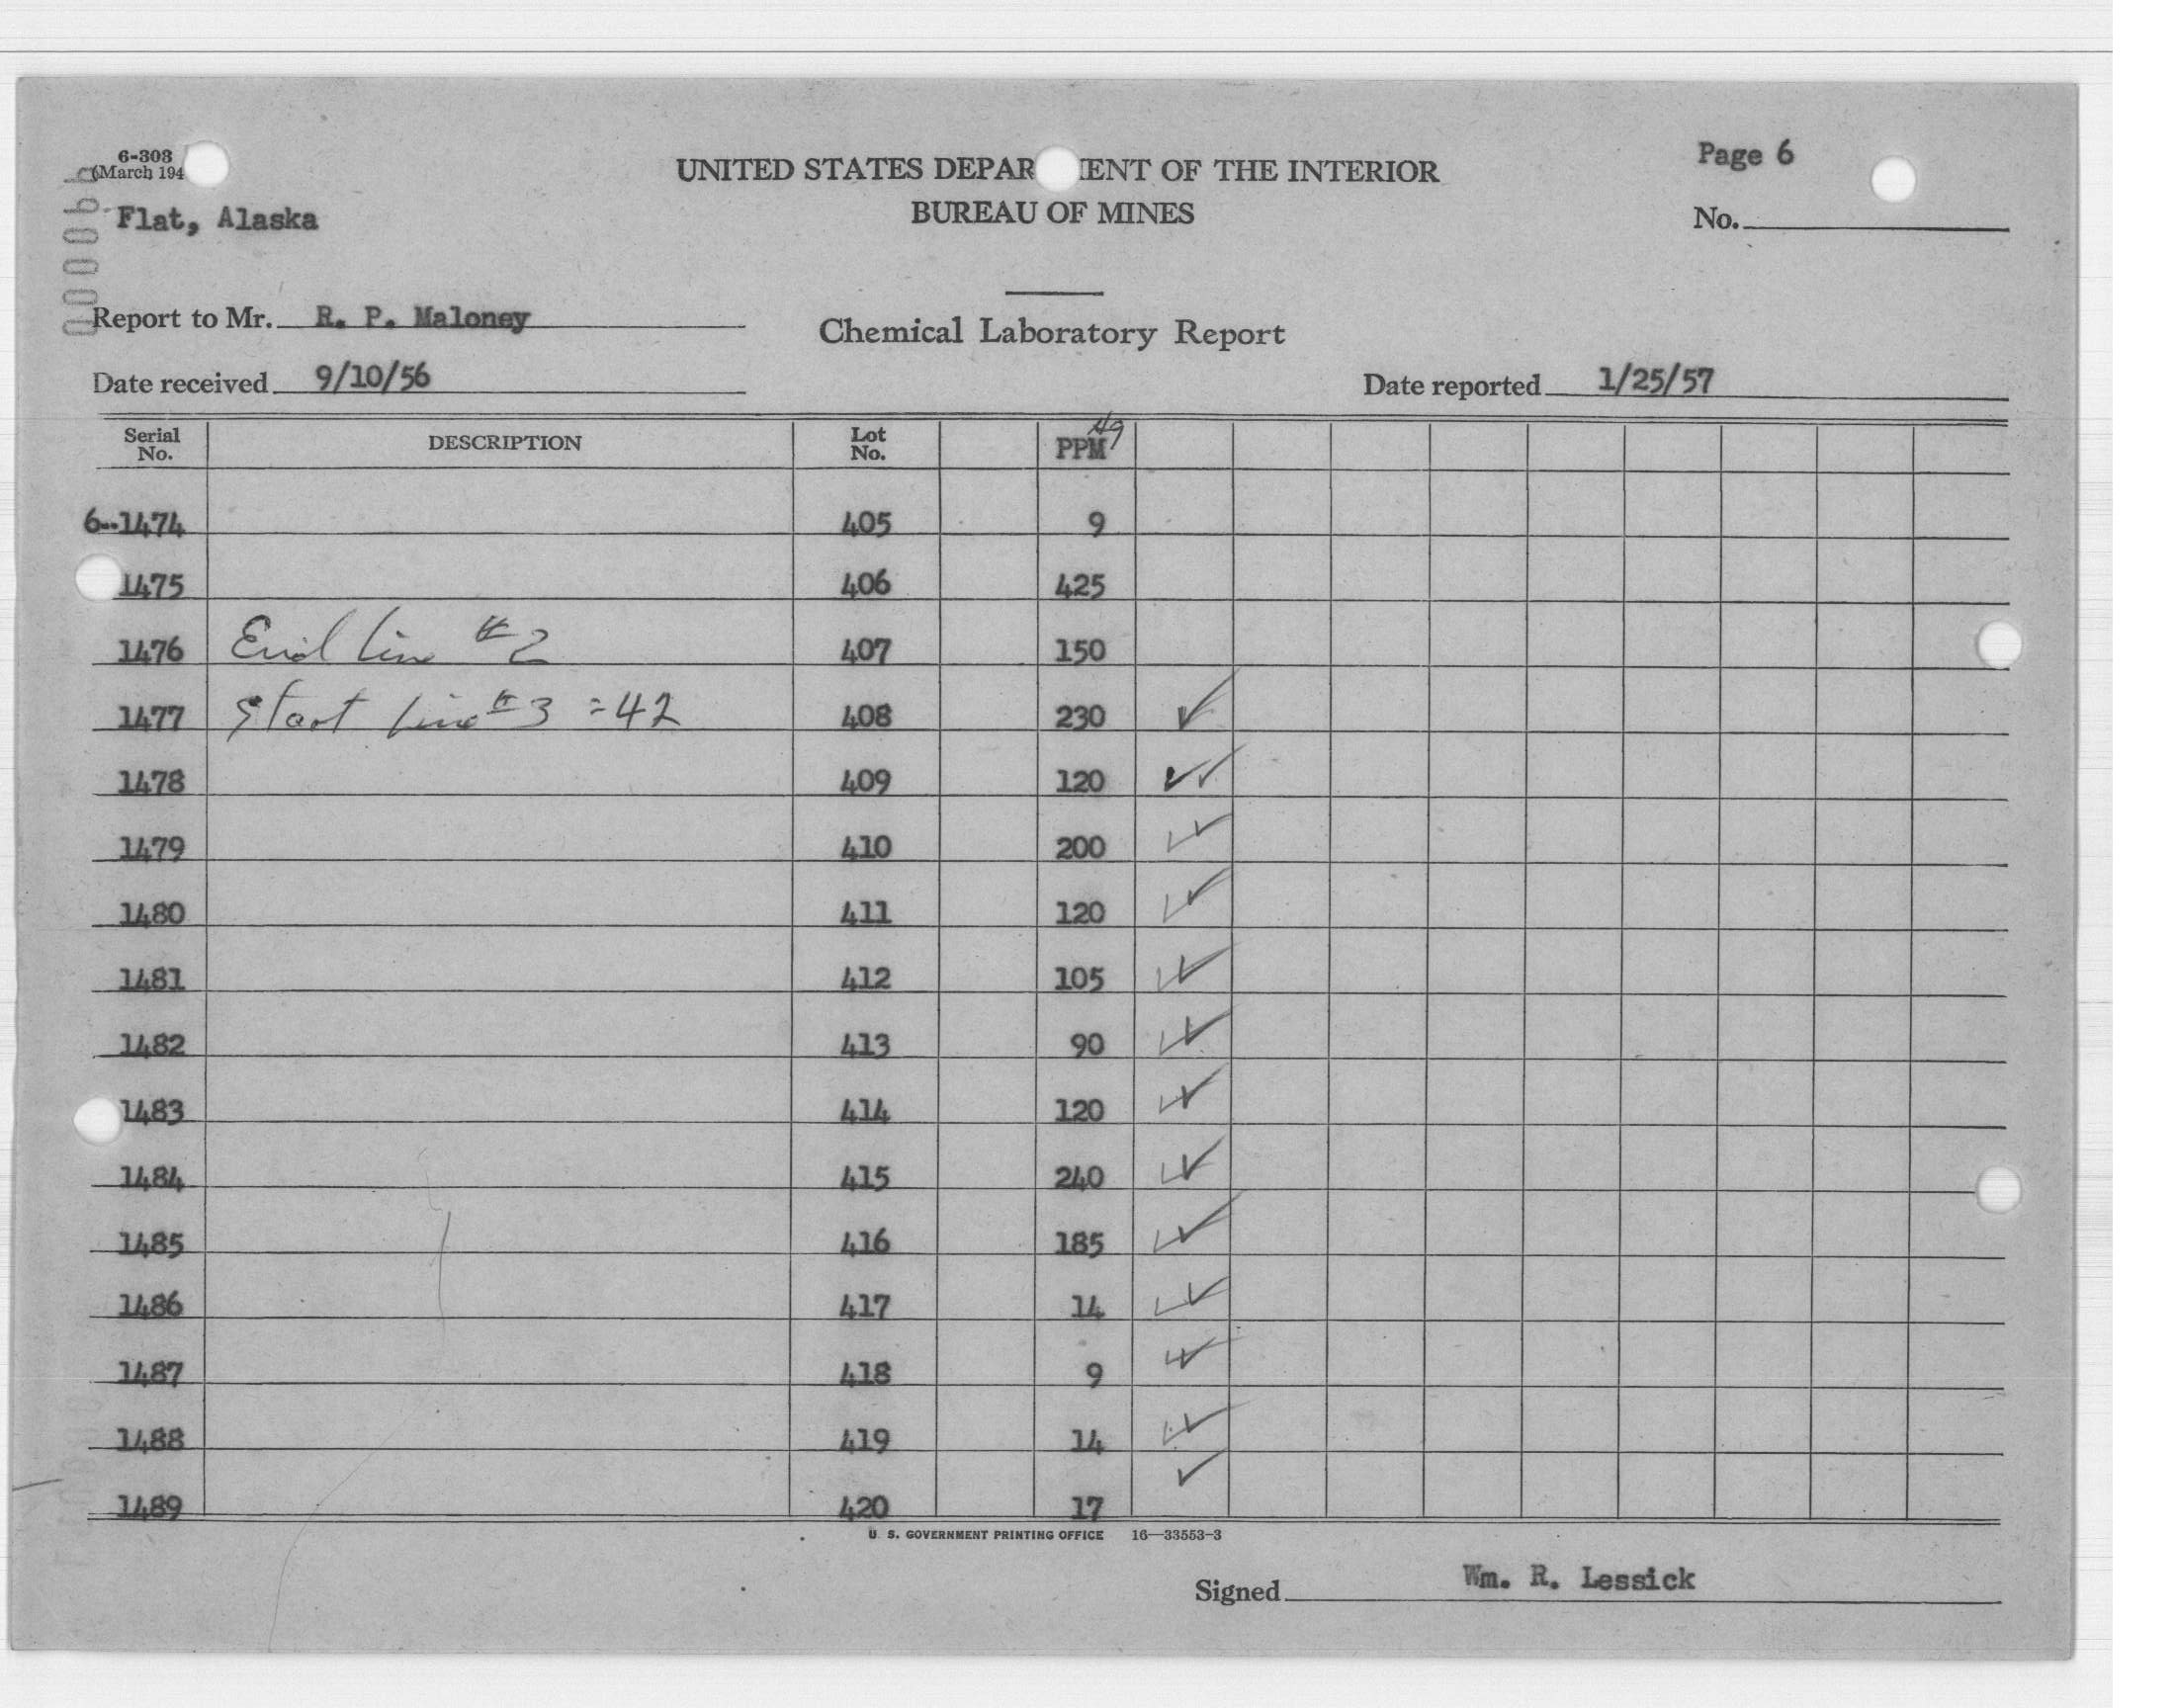 6-303
(March 194
Page 6
UNITED STATES DEPAR ENT OF THE INTERIOR
BUREAU OF MINES
Flat, Alaska
No.
Report to Mr. R. P. Maloney
Chemical Laboratory Report
Date received 9/10/56
Date reported 1/25/57
Serial No. DESCRIPTION Lot No. PPM Hg
6--1474 405 9
1475 406 425
1476 End line #2 407 150
1477 Start line #3 = 42 408 230 ✓
1478 409 120 ✓✓
1479 410 200 ✓✓
1480 411 120 ✓✓
1481 412 105 ✓✓
1482 413 90 ✓✓
1483 414 120 ✓✓
1484 415 240 ✓✓
1485 416 185 ✓✓
1486 417 14 ✓✓
1487 418 9 ✓✓
1488 419 14 ✓✓
1489 420 17 ✓
U. S. GOVERNMENT PRINTING OFFICE 16—33553-3
Signed Wm. R. Lessick